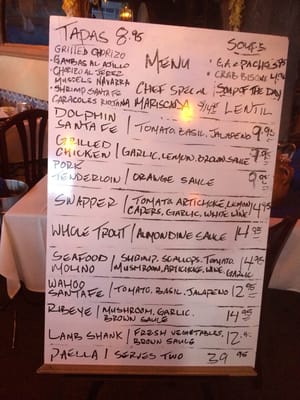 TAPAS 8.95
GRILLED CHORIZO
• GAMBAS AL AJILLO
• CHORIZO AL JEREZ
MUSSELS NAVARRA
• SHRIMP SANTA FE
CARACOLES RIOJANA
MENU
CHEF SPECIAL
MARISCADA
SOUPS
• GAZPACHO 3.95
• CRAB BISQUE 4.95
SOUP OF THE DAY
LENTIL
DOLPHIN
SANTA FE / TOMATO, BASIL, JALAPENO 9.95
GRILLED
CHICKEN / GARLIC, LEMON, BROWN SAUCE 9.95
PORK
TENDERLOIN / ORANGE SAUCE 9.95
SNAPPER / TOMATO, ARTICHOKE, LEMON 14.95
CAPERS, GARLIC, WHITE WINE
WHOLE TROUT / ALMONDINE SAUCE 14.95
SEAFOOD / SHRIMP, SCALLOPS, TOMATO, 14.95
MOLINO MUSHROOM, ARTICHOKE, WINE, GARLIC
WAHOO
SANTA FE / TOMATO, BASIL, JALAPENO 12.95
RIBEYE / MUSHROOM, GARLIC, 14.95
BROWN SAUCE
LAMB SHANK / FRESH VEGETABLES, 12.95
BROWN SAUCE
PAELLA / SERVES TWO 39.95